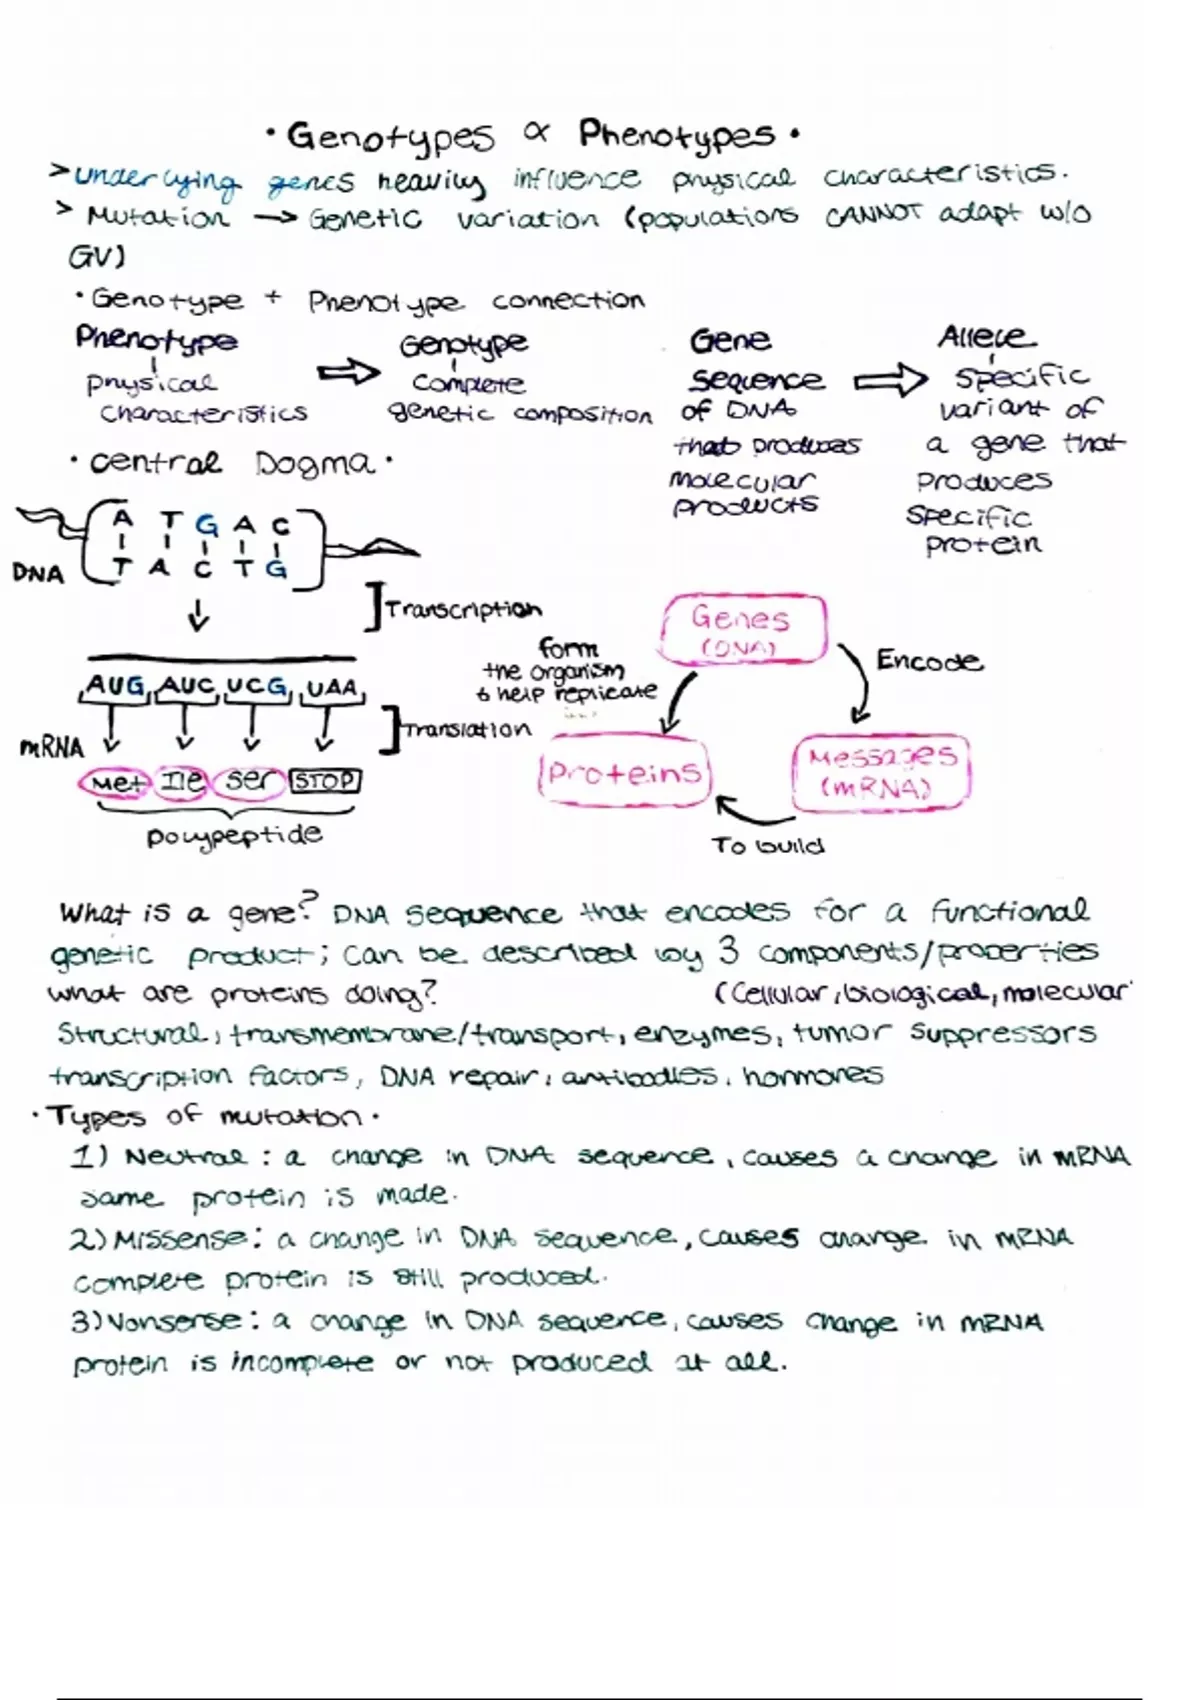 • Genotypes & Phenotypes •
> underlying genes heavily influence physical characteristics.
> Mutation → Genetic variation (populations CANNOT adapt w/o
GV)
• Genotype + Phenotype connection
Phenotype
physical
characteristics
⇒
Genotype
complete
genetic composition
Gene
sequence
of DNA
that produces
molecular
products
⇒
Allele
specific
variant of
a gene that
produces
specific
protein
• Central Dogma •
A T G A C
T A C T G
DNA
Transcription
AUG, AUC, UCG, UAA,
mRNA
Translation
Met Ile Ser STOP
polypeptide
Genes
(DNA)
Encode
Messages
(mRNA)
To build
Proteins
form
the organism
& help replicate
What is a gene? DNA sequence that encodes for a functional
genetic product; can be described by 3 components/properties
(cellular, biological, molecular
what are proteins doing?
Structural, transmembrane/transport, enzymes, tumor suppressors
transcription factors, DNA repair, antibodies, hormones
• Types of mutation •
1) Neutral: a change in DNA sequence, causes a change in mRNA
same protein is made.
2) Missense: a change in DNA sequence, causes change in mRNA
complete protein is still produced.
3) Nonsense: a change in DNA sequence, causes change in mRNA
protein is incomplete or not produced at all.